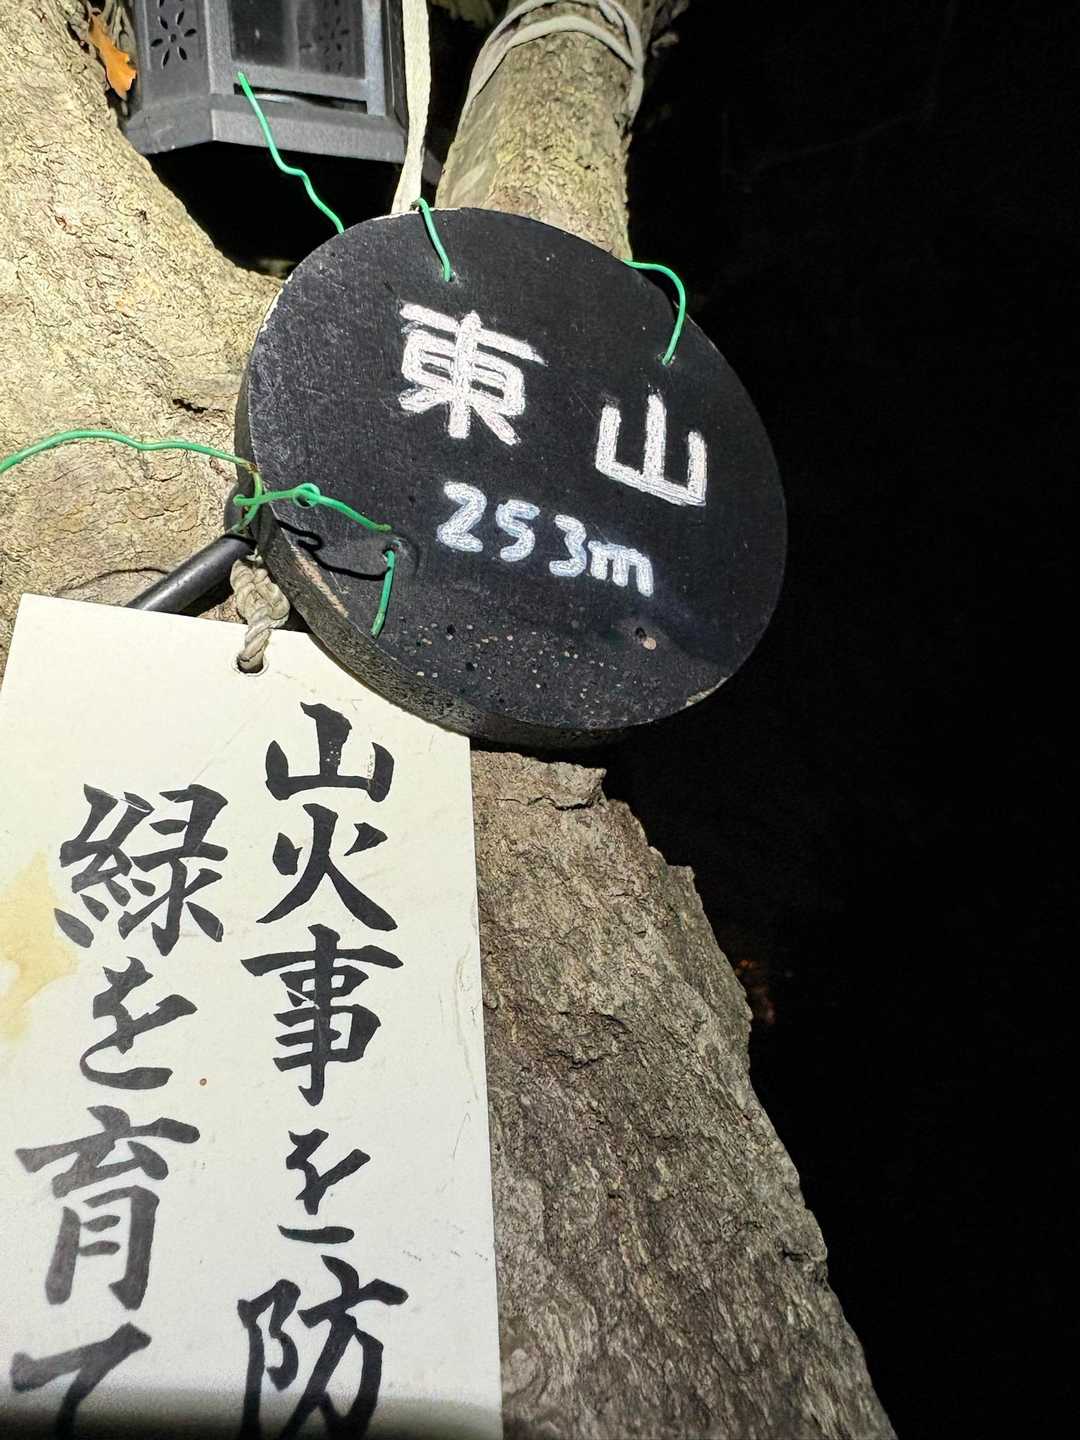 東山
253m
山火事を防
緑を育て